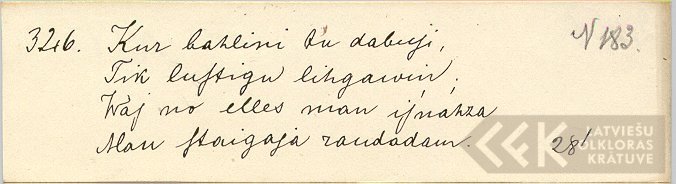 3246. Kur bahlini tu dabuji, N 183.
Tik luftigu lihgawiņ;
Waj no elles man ifnahza
Man ftaigaja raudadam. 28¹
LATVIEŠU
FOLKLORAS
KRĀTUVE